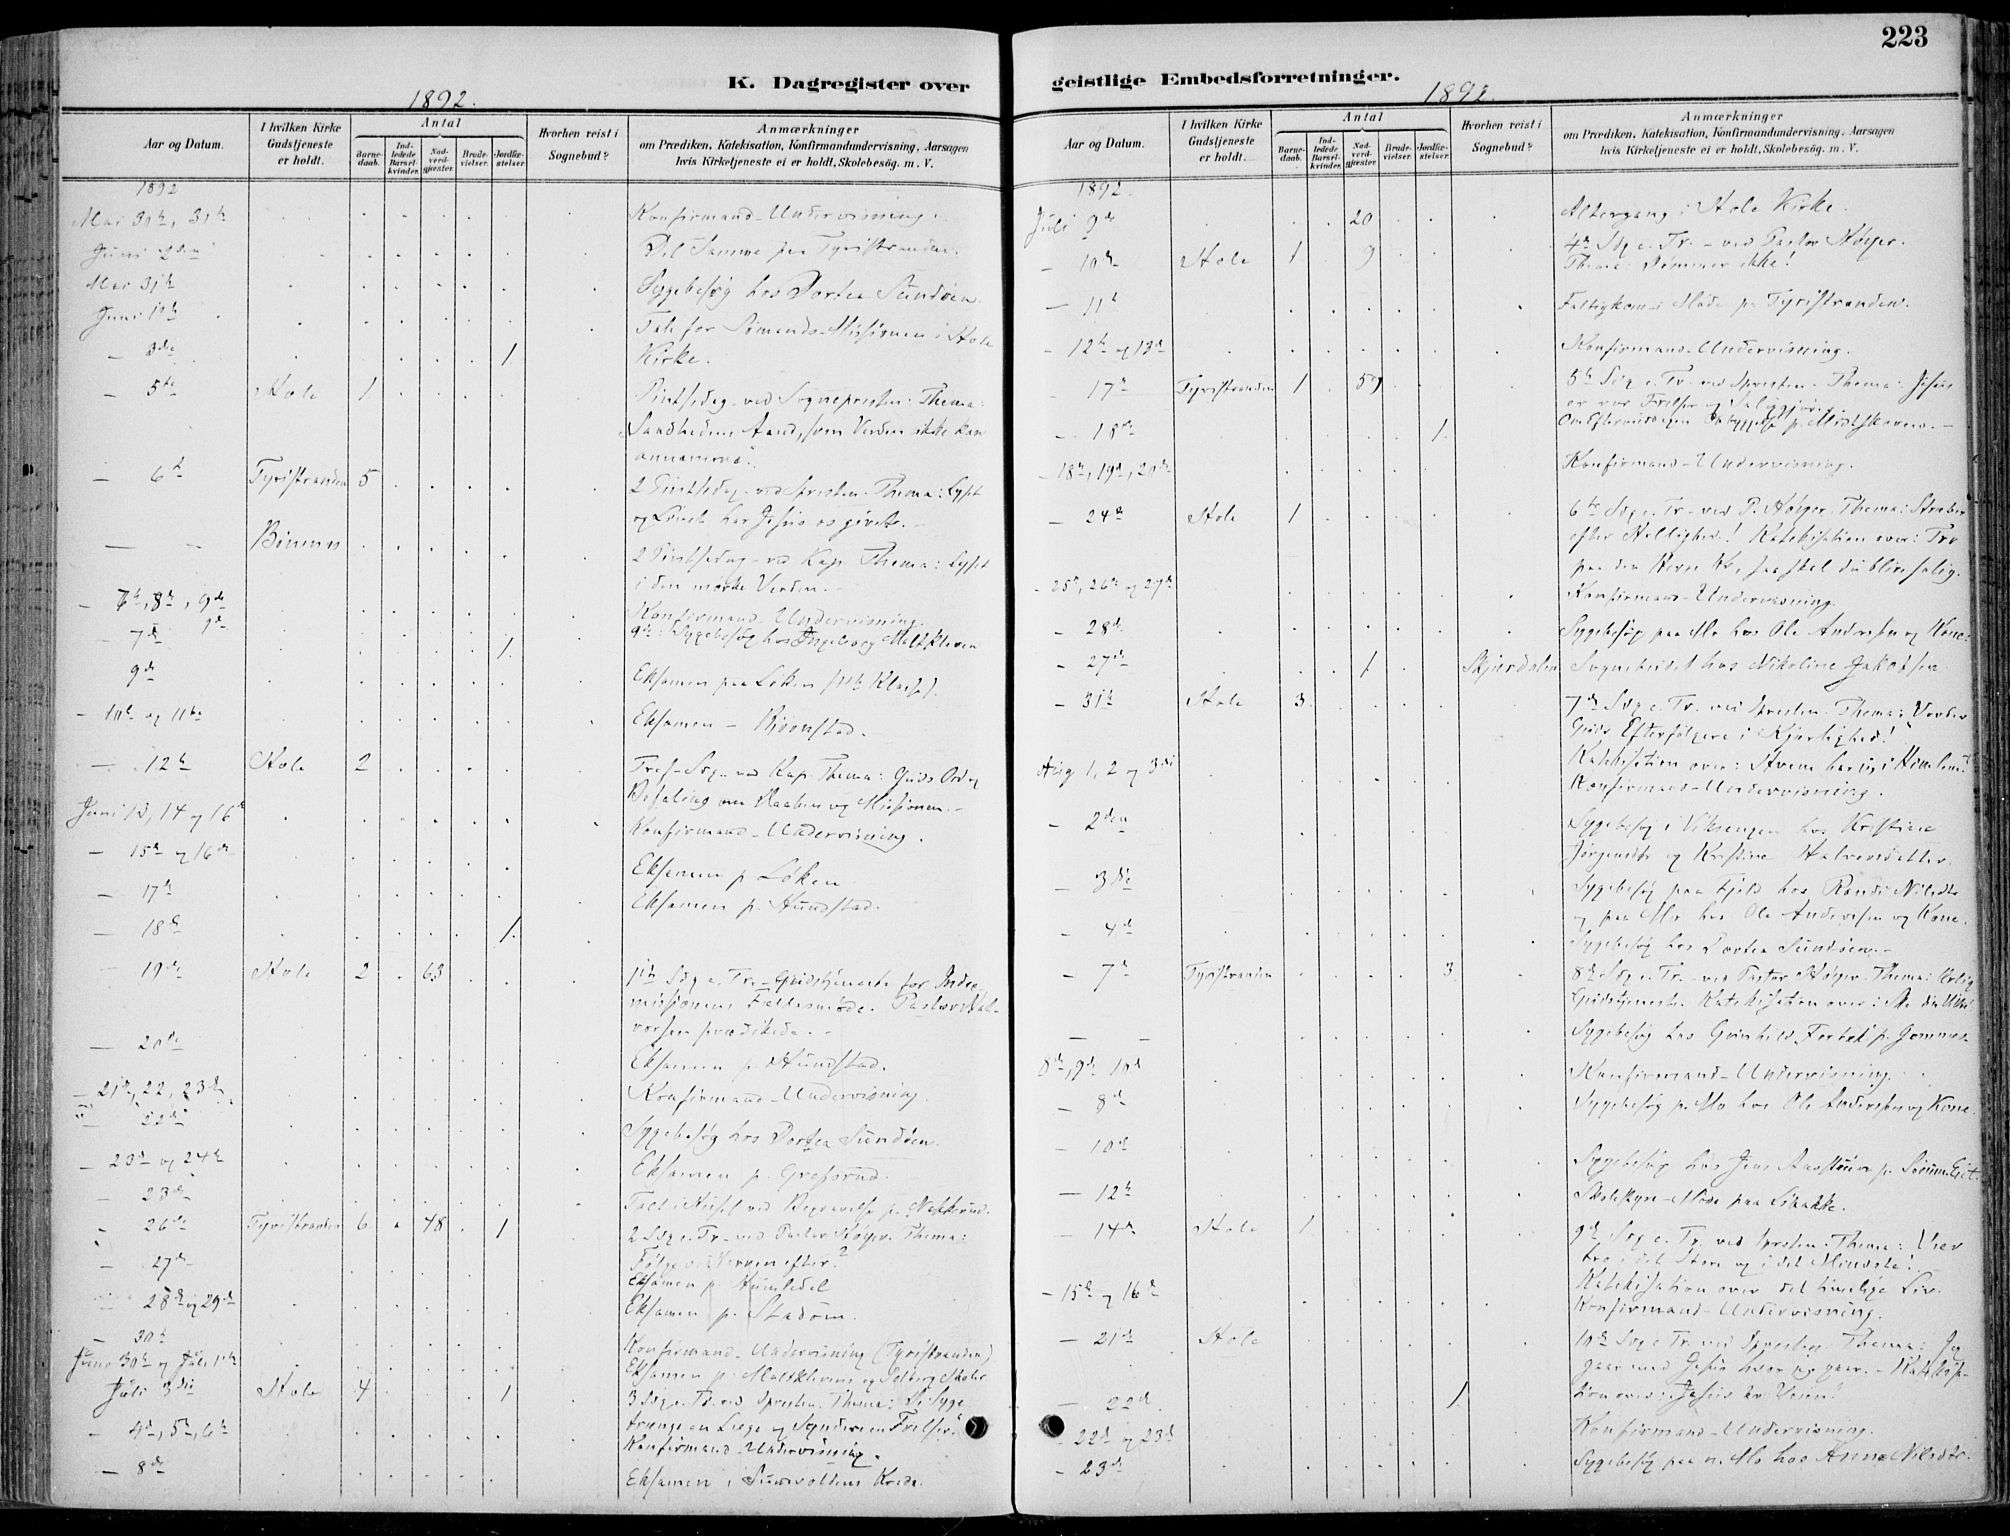 223
K. Dagregister over geistlige Embedsforretninger.
1892.
Aar og Datum.
I hvilken Kirke Gudstjeneste er holdt.
Antal
Barnedaab.
Indledede Barselkvinder.
Nadverdgjester.
Brudevielser.
Jordfæstelser.
Hvorhen reist i Sognebud?
Anmærkninger
om Prædiken, Katekisation, Konfirmandundervisning, Aarsagen
hvis Kirketjeneste ei er holdt, Skolebesög. m. V.
1892
Mai 30te, 31te Konfirmand-Undervisning.
Juni 2den Det Samme paa Tyristranden.
Mai 31te Sygebesøg hos Dortea Sundøen.
Juni 1ste Tale for Sømands-Missionen i Hole
— 3die 1 Kirke.
— 5te Hole 1 Pintsedag ved Sognepresten. Thema:
Sandhedens Aand, som Verden ikke kan
annamme.
— 6te Tyristranden 5 2 Pintsedag ved Spresten. Thema: Lyst
og Livet har Jesus os givet.
— — Bönsnes 2 Pintsedag ved Kap. Thema: Lyset
i den mørke Verden.
— 7de, 8de, 9de Konfirmand-Undervisning.
— 7de 1 9de: Sygebesøg hos Ingeborg Moltkleven
9de Eksamen paa Løken
— 10de og 11te Eksamen - Bjørnstad.
— 12te Hole 2 Tref.-Søg. ved Kap. Thema: Guds Ord og
Befaling om Daaben og Missionen.
Juni 13, 14 og 16de Konfirmand-Undervisning.
— 15de og 16de Eksamen p. Løken
— 17de Eksamen p. Hundstad.
— 18de 1
— 19de Hole 2 63 1ste Søg e. Tr. Gudstjeneste for Indre-
missionens Fællesmøde. Pastor Hal-
vorsen prædikede.
— 20de Eksamen p. Hundstad.
— 21de, 22, 23de Konfirmand-Undervisning.
— 22de Sygebesøg hos Dortea Sundøen.
— 23de og 24de Eksamen p. Gresrud.
— 23de
— 26de Tyristranden 6 48 1 2 Søg e. Tr. ved Pastor Høyer. Thema:
— 27de Følge vi Herren efter?
Eksamen p. Humledal
28de og 29de Eksamen p. Stadum.
— 30te
Juni 30te og Juli 1ste Konfirmand-Undervisning (Tyristranden)
Juli 3die Hole 4 1 3 Søg e. Tr. ved Spresten. Thema: De Syge
— 4de, 5te, 6te trænge en Læge og Synderen en Frelser.
Konfirmand-Undervisning.
— 8de
1892.
Aar og Datum.
I hvilken Kirke Gudstjeneste er holdt.
Antal
Barnedaab.
Indledede Barselkvinder.
Nadverdgjester.
Brudevielser.
Jordfæstelser.
Hvorhen reist i Sognebud?
Anmærkninger
om Prædiken, Katekisation, Konfirmandundervisning, Aarsagen
hvis Kirketjeneste ei er holdt, Skolebesög. m. V.
1892.
Juli 9de 20 Altergang i Hole Kirke.
— 10de Hole 1 9 4de Søg e. Tr. - ved Pastor Høyer.
Thema: Dømmer ikke!
— 11te Fattigkom.-Møde p. Tyristranden.
— 12te og 13de Konfirmand-Undervisning.
— 17de Tyristranden 1 59 5te Søg e. Tr. ved Spresten. Thema: Jesus
er vor Frelser og Saliggjører.
— 18de 1
— 18de, 19de, 20de Konfirmand-Undervisning.
— 24de Hole 1 6te Søg e. Tr. ved P. Høyer. Thema: Stræber
efter Hellighed! Katekisation over: Tro
paa den Herre Kr., saa skal du blive salig.
— 25de, 26de og 27de Konfirmand-Undervisning.
— 28de Sygebesøg paa Mo hos Ole Andersen og Kone.
— 27de 1 Skjærdalen Sognebudet hos Nikoline Jakobsen
— 31te Hole 3 7de Søg e. Tr. ved Spresten. Thema: Vorder
Guds Efterfølgere i Kjærlighed!
Katekisation over: Hvem har jeg i Himlen?
Aug 1, 2 og 3die Konfirmand-Undervisning.
— 2den Sygebesøg i Viksengen hos Kristine
Jørgensdtr og Kristine Halvorsdatter.
— 3die Sygebesøg paa Fjeld hos Randi Nilsdtr
og paa Mo hos Ole Andersen og Kone.
— 4de Sygebesøg hos Dortea Sundøen.
— 7de Tyristranden 3 8de Søg e. Tr. ved Pastor Høyer. Thema:
Gudstjeneste. Katekisation over: Ske din Villie
— — Sygebesøg hos Gunhild
8de, 9de 10de Konfirmand-Undervisning.
— 8de Sygebesøg p. Mo hos Ole Andersen og Kone.
— 10de Sygebesøg hos Jens
— 12te Skolestyre-Møde paa Libakke.
— 14de Hole 1 9de Søg e. Tr. ved Spresten. Thema: Vær
tro i det Store og i det Mindste!
Katekisation over det timelige Liv.
— 15de og 16de Konfirmand-Undervisning.
— 21de Hole 10de Søg e. Tr. ved Spresten. Thema: Jeg
gaar med Jesus hvor jeg gaar. - Katekisa-
tion over: Jesus er Veien!
— 22de 1
— 22de og 23de Konfirmand-Undervisning.
— 23de Sygebesøg paa n. Mo hos Anne Nilsdtr.